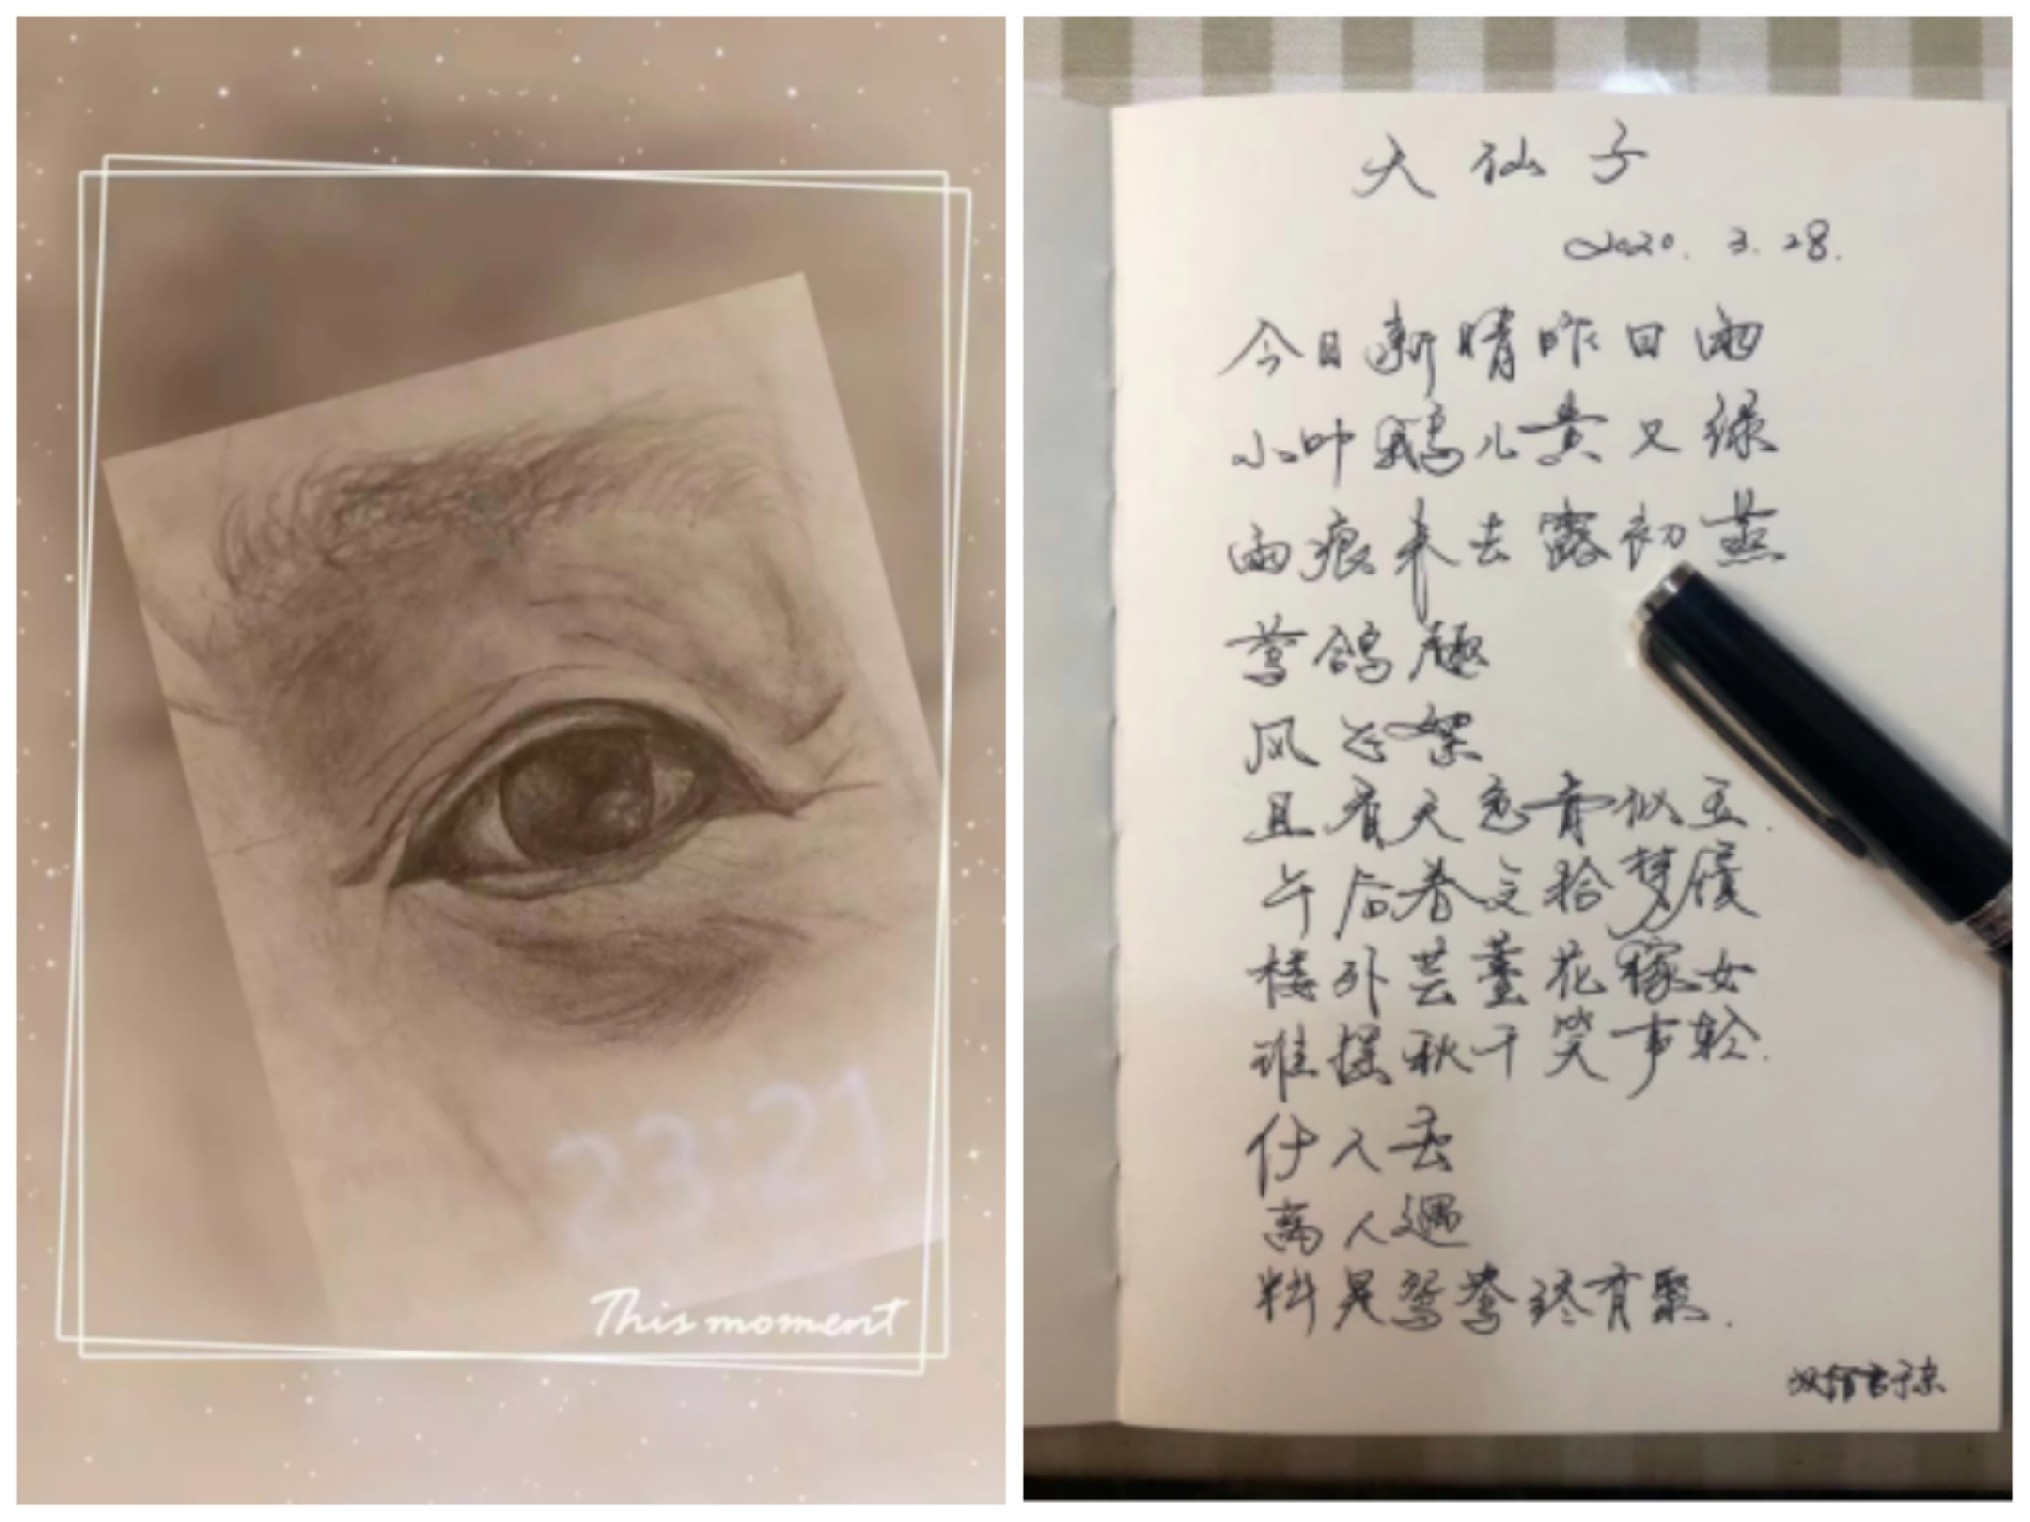 23:21
This moment
天仙子
2020.3.28.
今日新晴昨日雨
小叶鹅儿黄又绿
雨痕来去露初燕
莺鸽趣
风飞絮
且看天色青似玉.
午后春文拾梦侯
楼外芸薹花稼女
谁摇秋千笑声轻.
什人去
离人遇
料是鸳鸯终有聚.